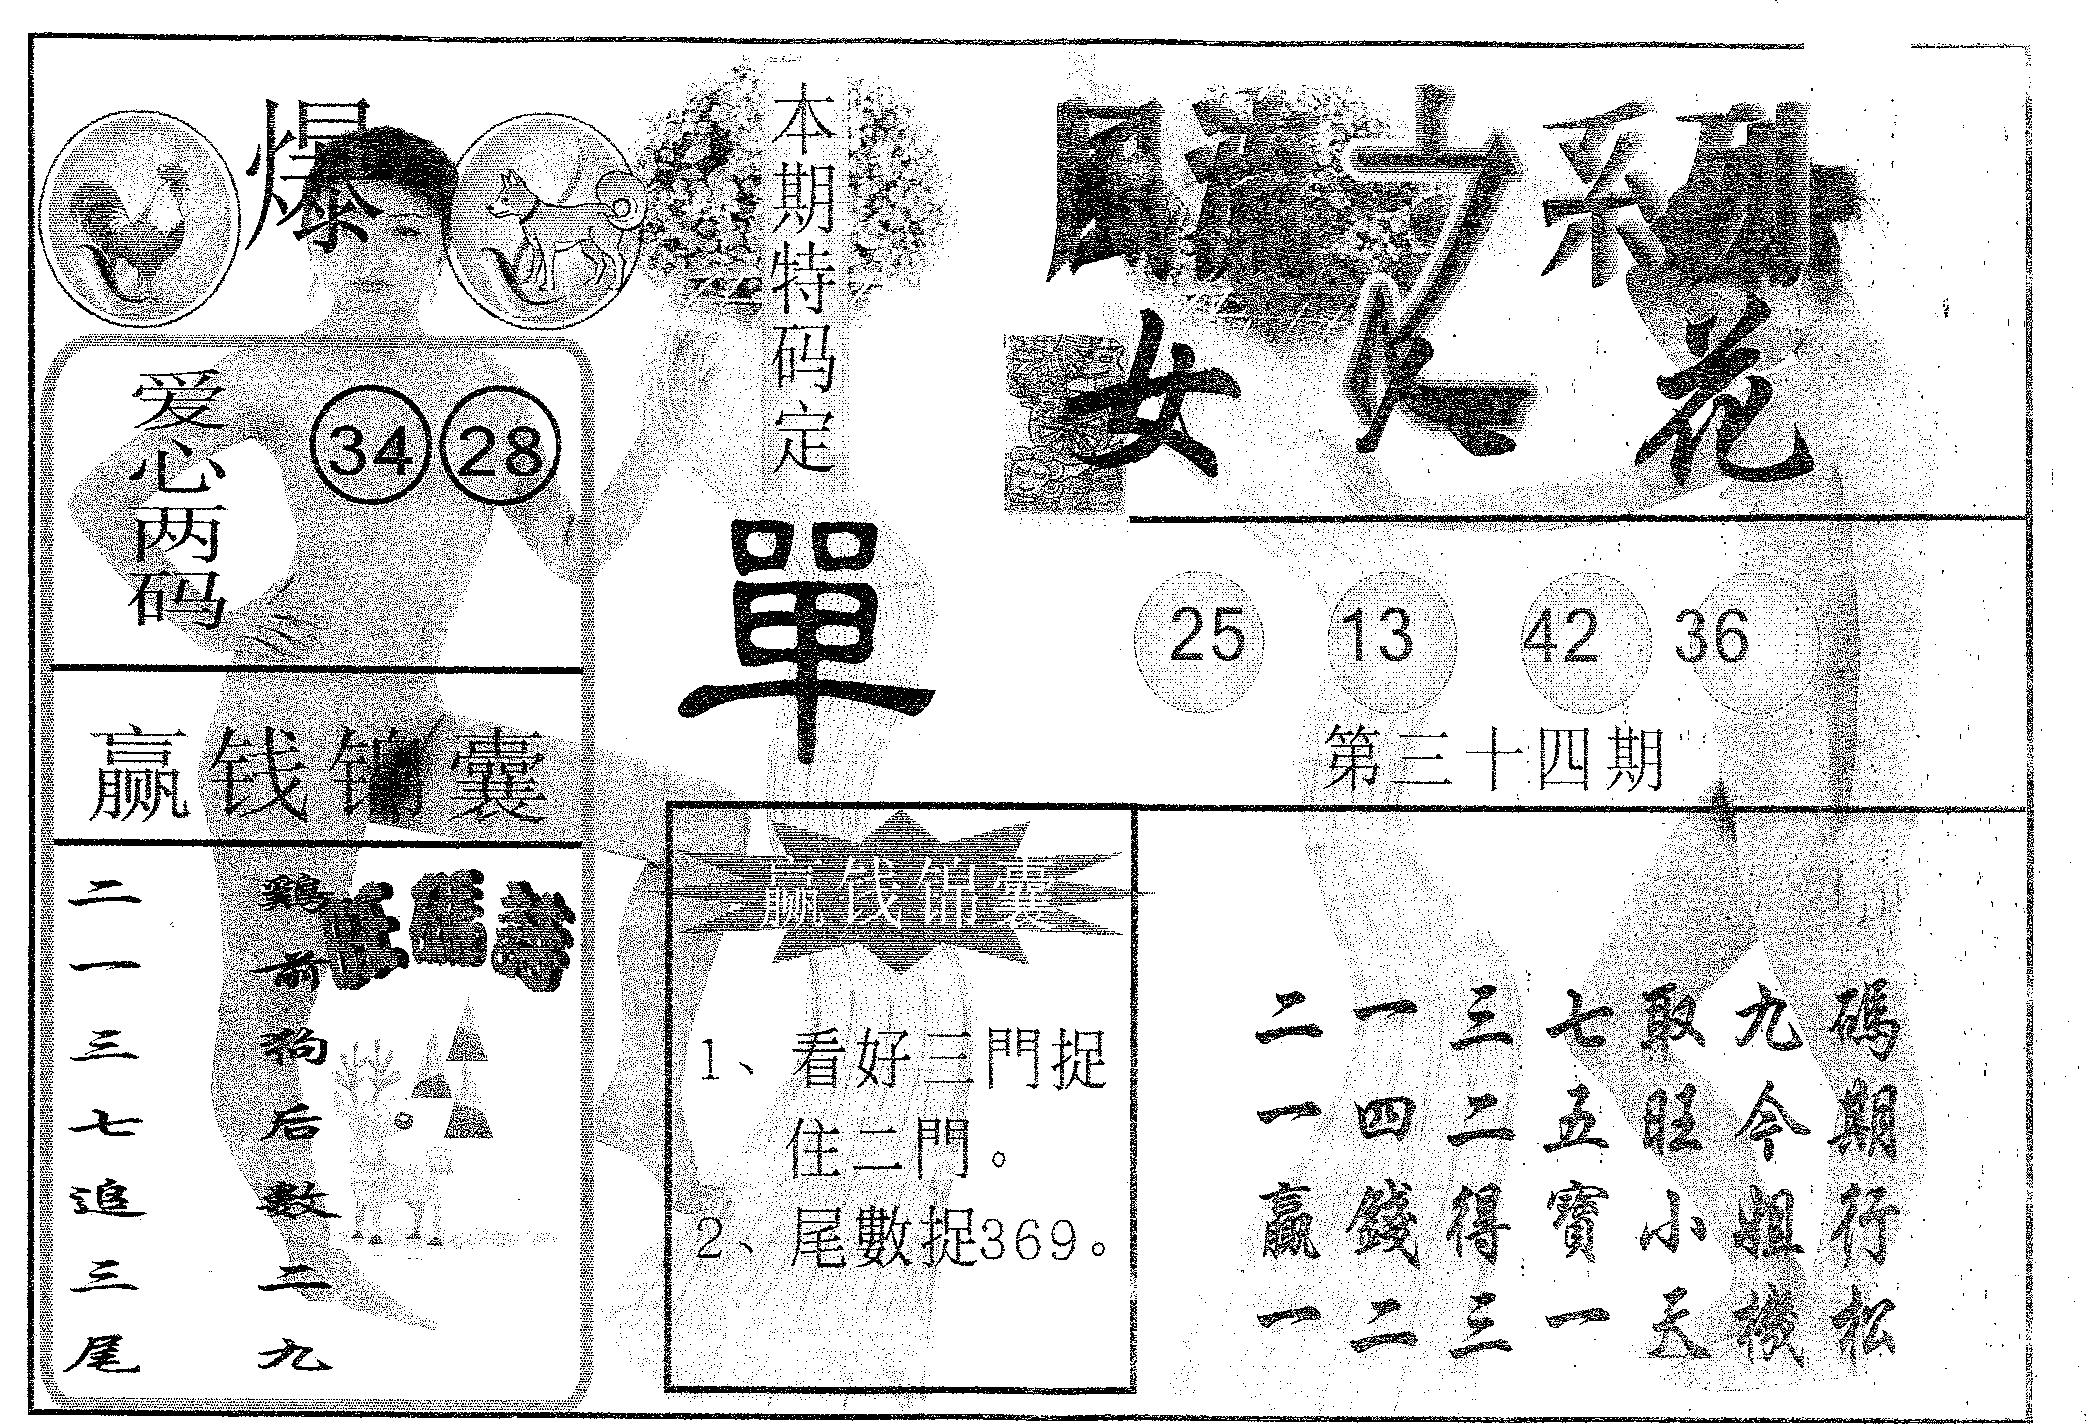 爆
本期特码定
單
女 花
爱心两码
34 28
25 13 42 36
第三十四期
赢钱锦囊
二一三七追三尾
鷄前狗后數二九
赢钱锦囊
1、看好三門捉
住二門。
2、尾數捉369。
二一三七取九碼
一四二五旺今期
贏錢得寶小姐行
一二三一天機松